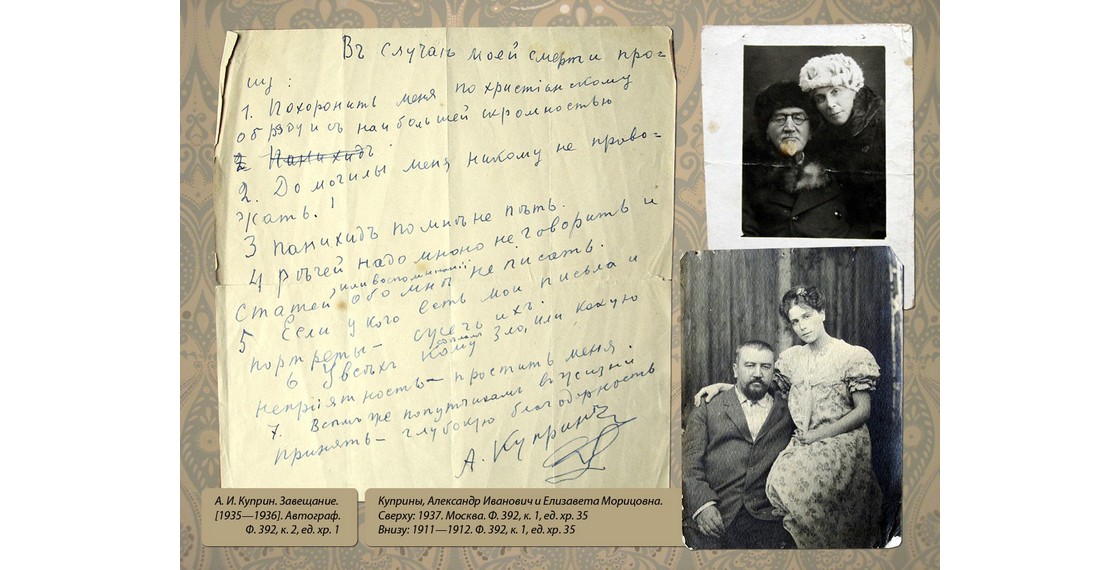 Въ случаѣ моей смерти про=
шу:
1. Похоронить меня по христіанскому
обряду и съ наибольшей скромностью
2 Панихидъ
2. До могилы меня никому не прово=
жать.
3 панихидъ по мнѣ не пѣть.
4 Рѣчей надо мною не говорить и
, или воспоминаній
статей обо мнѣ не писать.
5 Если у кого есть мои письма и
портреты — сжечь ихъ.
6 У всѣхъ кому зло, или какую
непріятность — простить меня.
7. Всѣмъ же попутчикамъ въ жизни
принять — глубокую благодарность
А. Купринъ
А. И. Куприн. Завещание.
[1935—1936]. Автограф.
Ф. 392, к. 2, ед. хр. 1
Куприны, Александр Иванович и Елизавета Морицовна.
Сверху: 1937. Москва. Ф. 392, к. 1, ед. хр. 35
Внизу: 1911—1912. Ф. 392, к. 1, ед. хр. 35